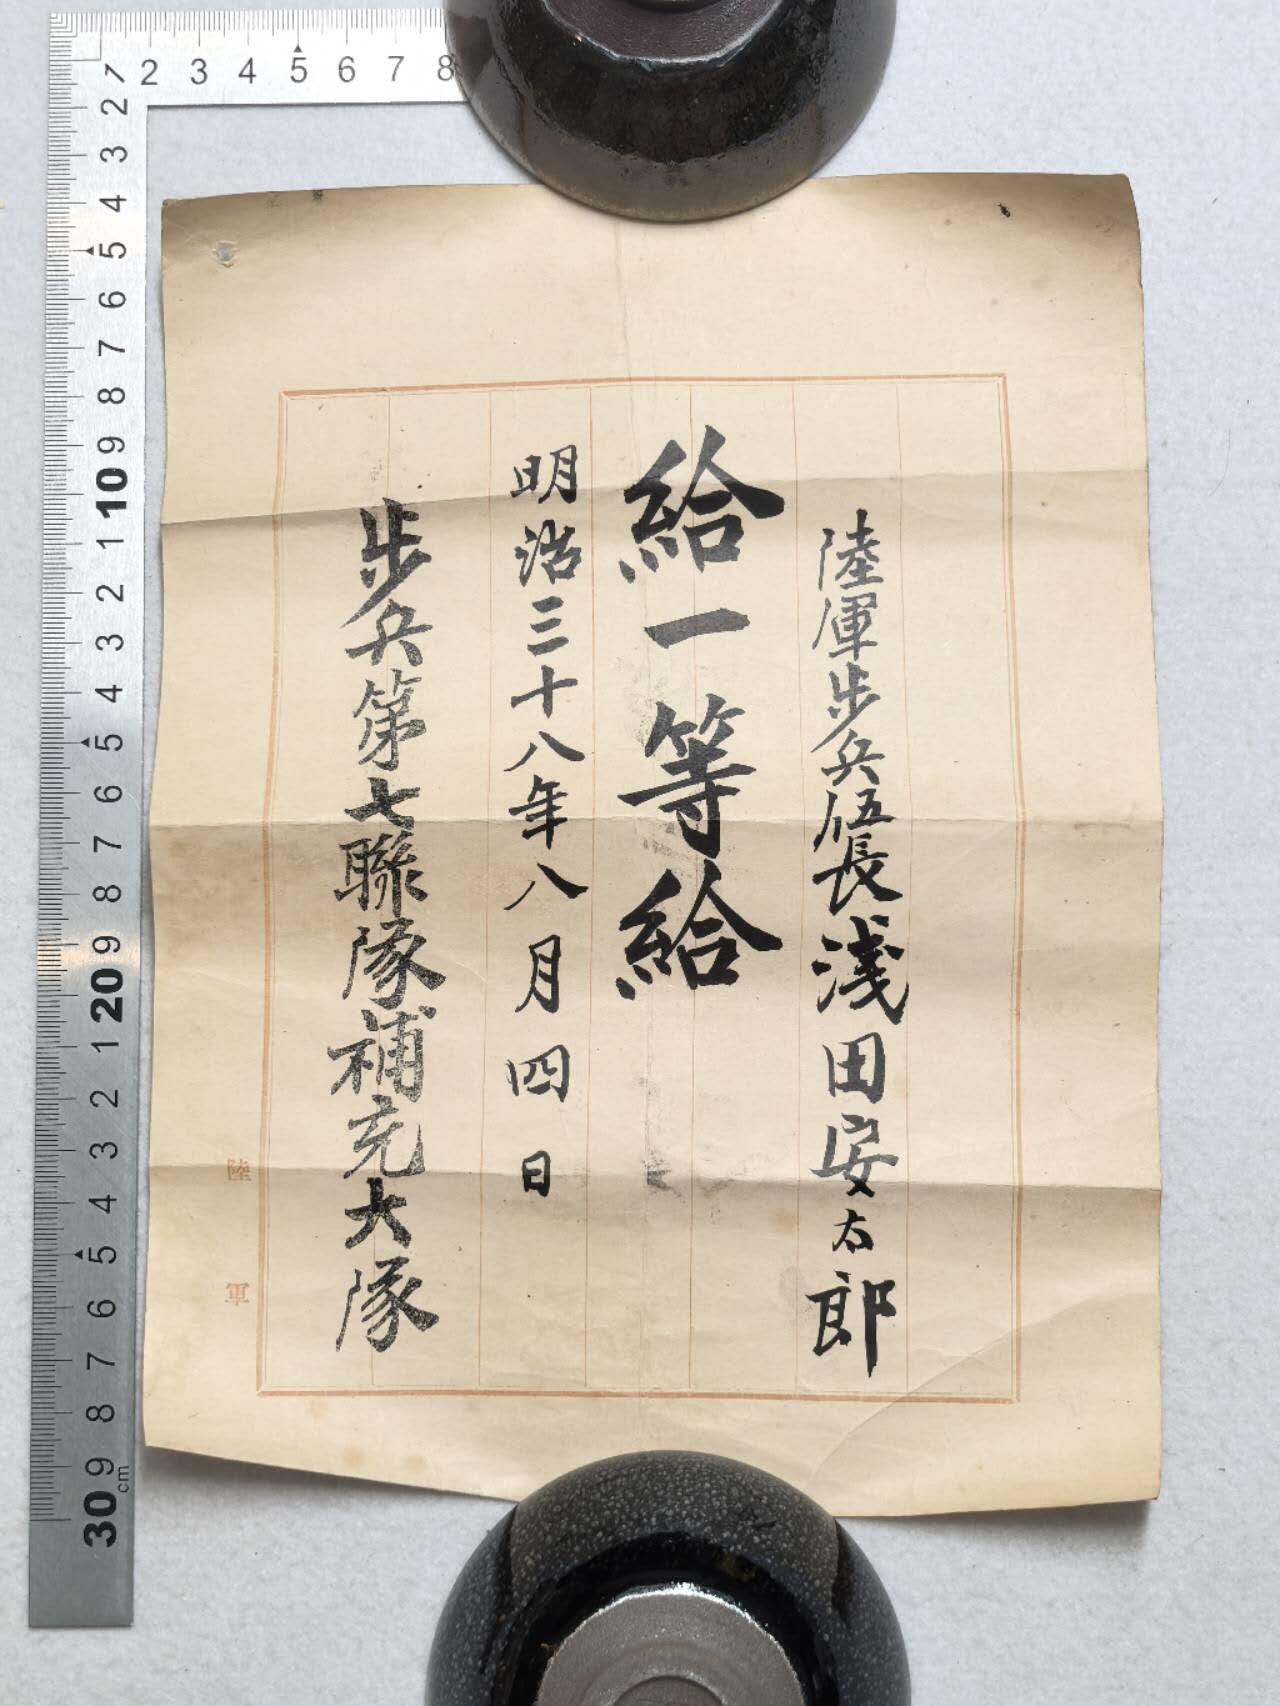 陸軍歩兵伍長淺田安太郎
給一等給
明治三十八年八月四日
歩兵第七聯隊補充大隊
陸軍
1 2 3 4 5 6 7 8
2 3 4 5 6 7 8 9 10 1 2 3 4 5 6 7 8 9 20 1 2 3 4 5 6 7 8 9 30 cm